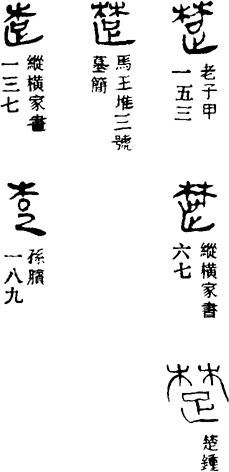 楚
老子甲
一五三
楚
縱橫家書
六七
楚
楚鍾
楚
馬王堆三號
墓簡
楚
縱橫家書
一三七
楚
孫臏
一八九